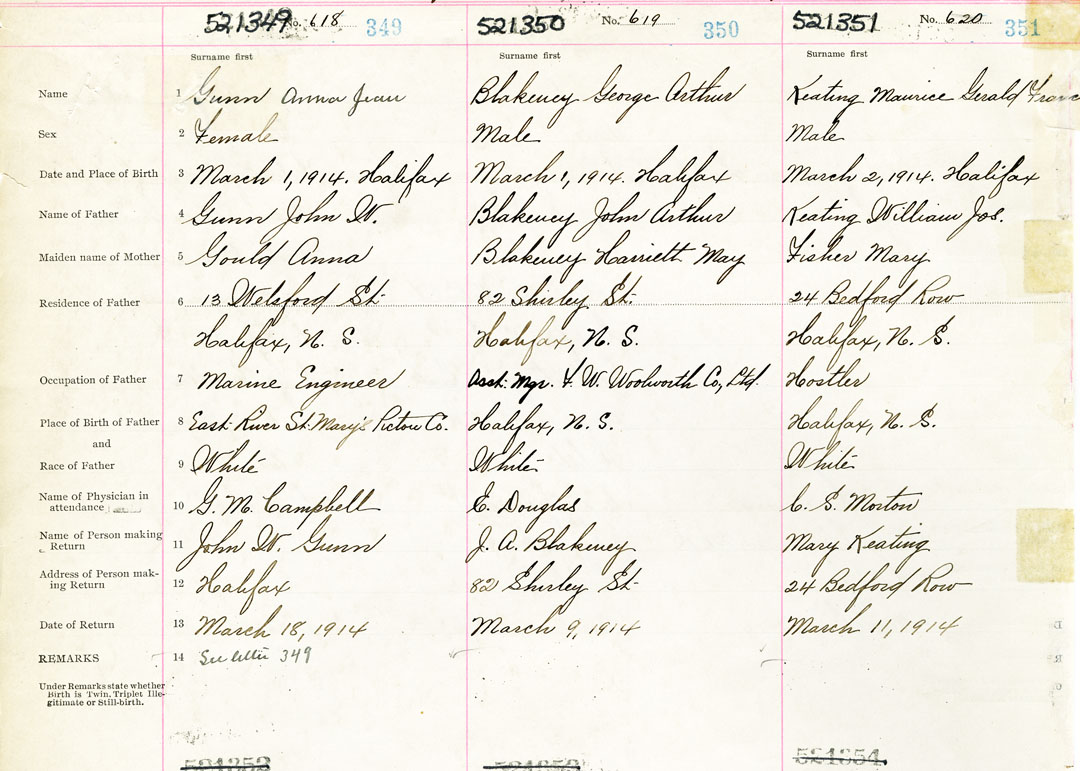 521349 No. 618 349 521350 No. 619 350 521351 No. 620 351
Surname first Surname first Surname first
Name 1 Gunn Anna Jean Blakeney George Arthur Keating Maurice Gerald
Sex 2 Female Male Male
Date and Place of Birth 3 March 1, 1914. Halifax March 1, 1914. Halifax March 2, 1914. Halifax
Name of Father 4 Gunn John W. Blakeney John Arthur Keating William Jos.
Maiden name of Mother 5 Gould Anna Blakeney Harriett May Fisher Mary
Residence of Father 6 13 Welsford St. 82 Shirley St. 24 Bedford Row
Halifax, N. S. Halifax, N. S. Halifax, N. S.
Occupation of Father 7 Marine Engineer Asst. Mgr. F. W. Woolworth Co, Ltd. Hostler
Place of Birth of Father 8 East River St. Mary's Pictou Co. Halifax, N. S. Halifax, N. S.
and
Race of Father 9 White White White
Name of Physician in
attendance 10 G. M. Campbell E. Douglas C. S. Morton
Name of Person making
Return 11 John W. Gunn J. A. Blakeney Mary Keating
Address of Person mak-
ing Return 12 Halifax 82 Shirley St. 24 Bedford Row
Date of Return 13 March 18, 1914 March 9, 1914 March 11, 1914
REMARKS 14 See letter 349
Under Remarks state whether
Birth is Twin, Triplet Ille-
gitimate or Still-birth.
521354